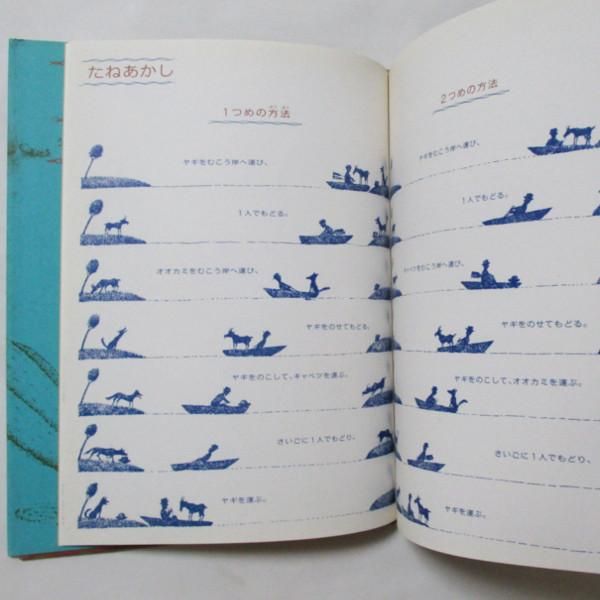 たねあかし
1つめの方法
ヤギをむこう岸へ運び、
1人でもどる。
オオカミをむこう岸へ運び、
ヤギをのせてもどる。
ヤギをのこして、キャベツを運ぶ。
さいごに1人でもどり、
ヤギを運ぶ。
2つめの方法
ヤギをむこう岸へ運び、
1人でもどる。
キャベツをむこう岸へ運び、
ヤギをのせてもどる。
ヤギをのこして、オオカミを運ぶ。
さいごに1人でもどり、
ヤギを運ぶ。